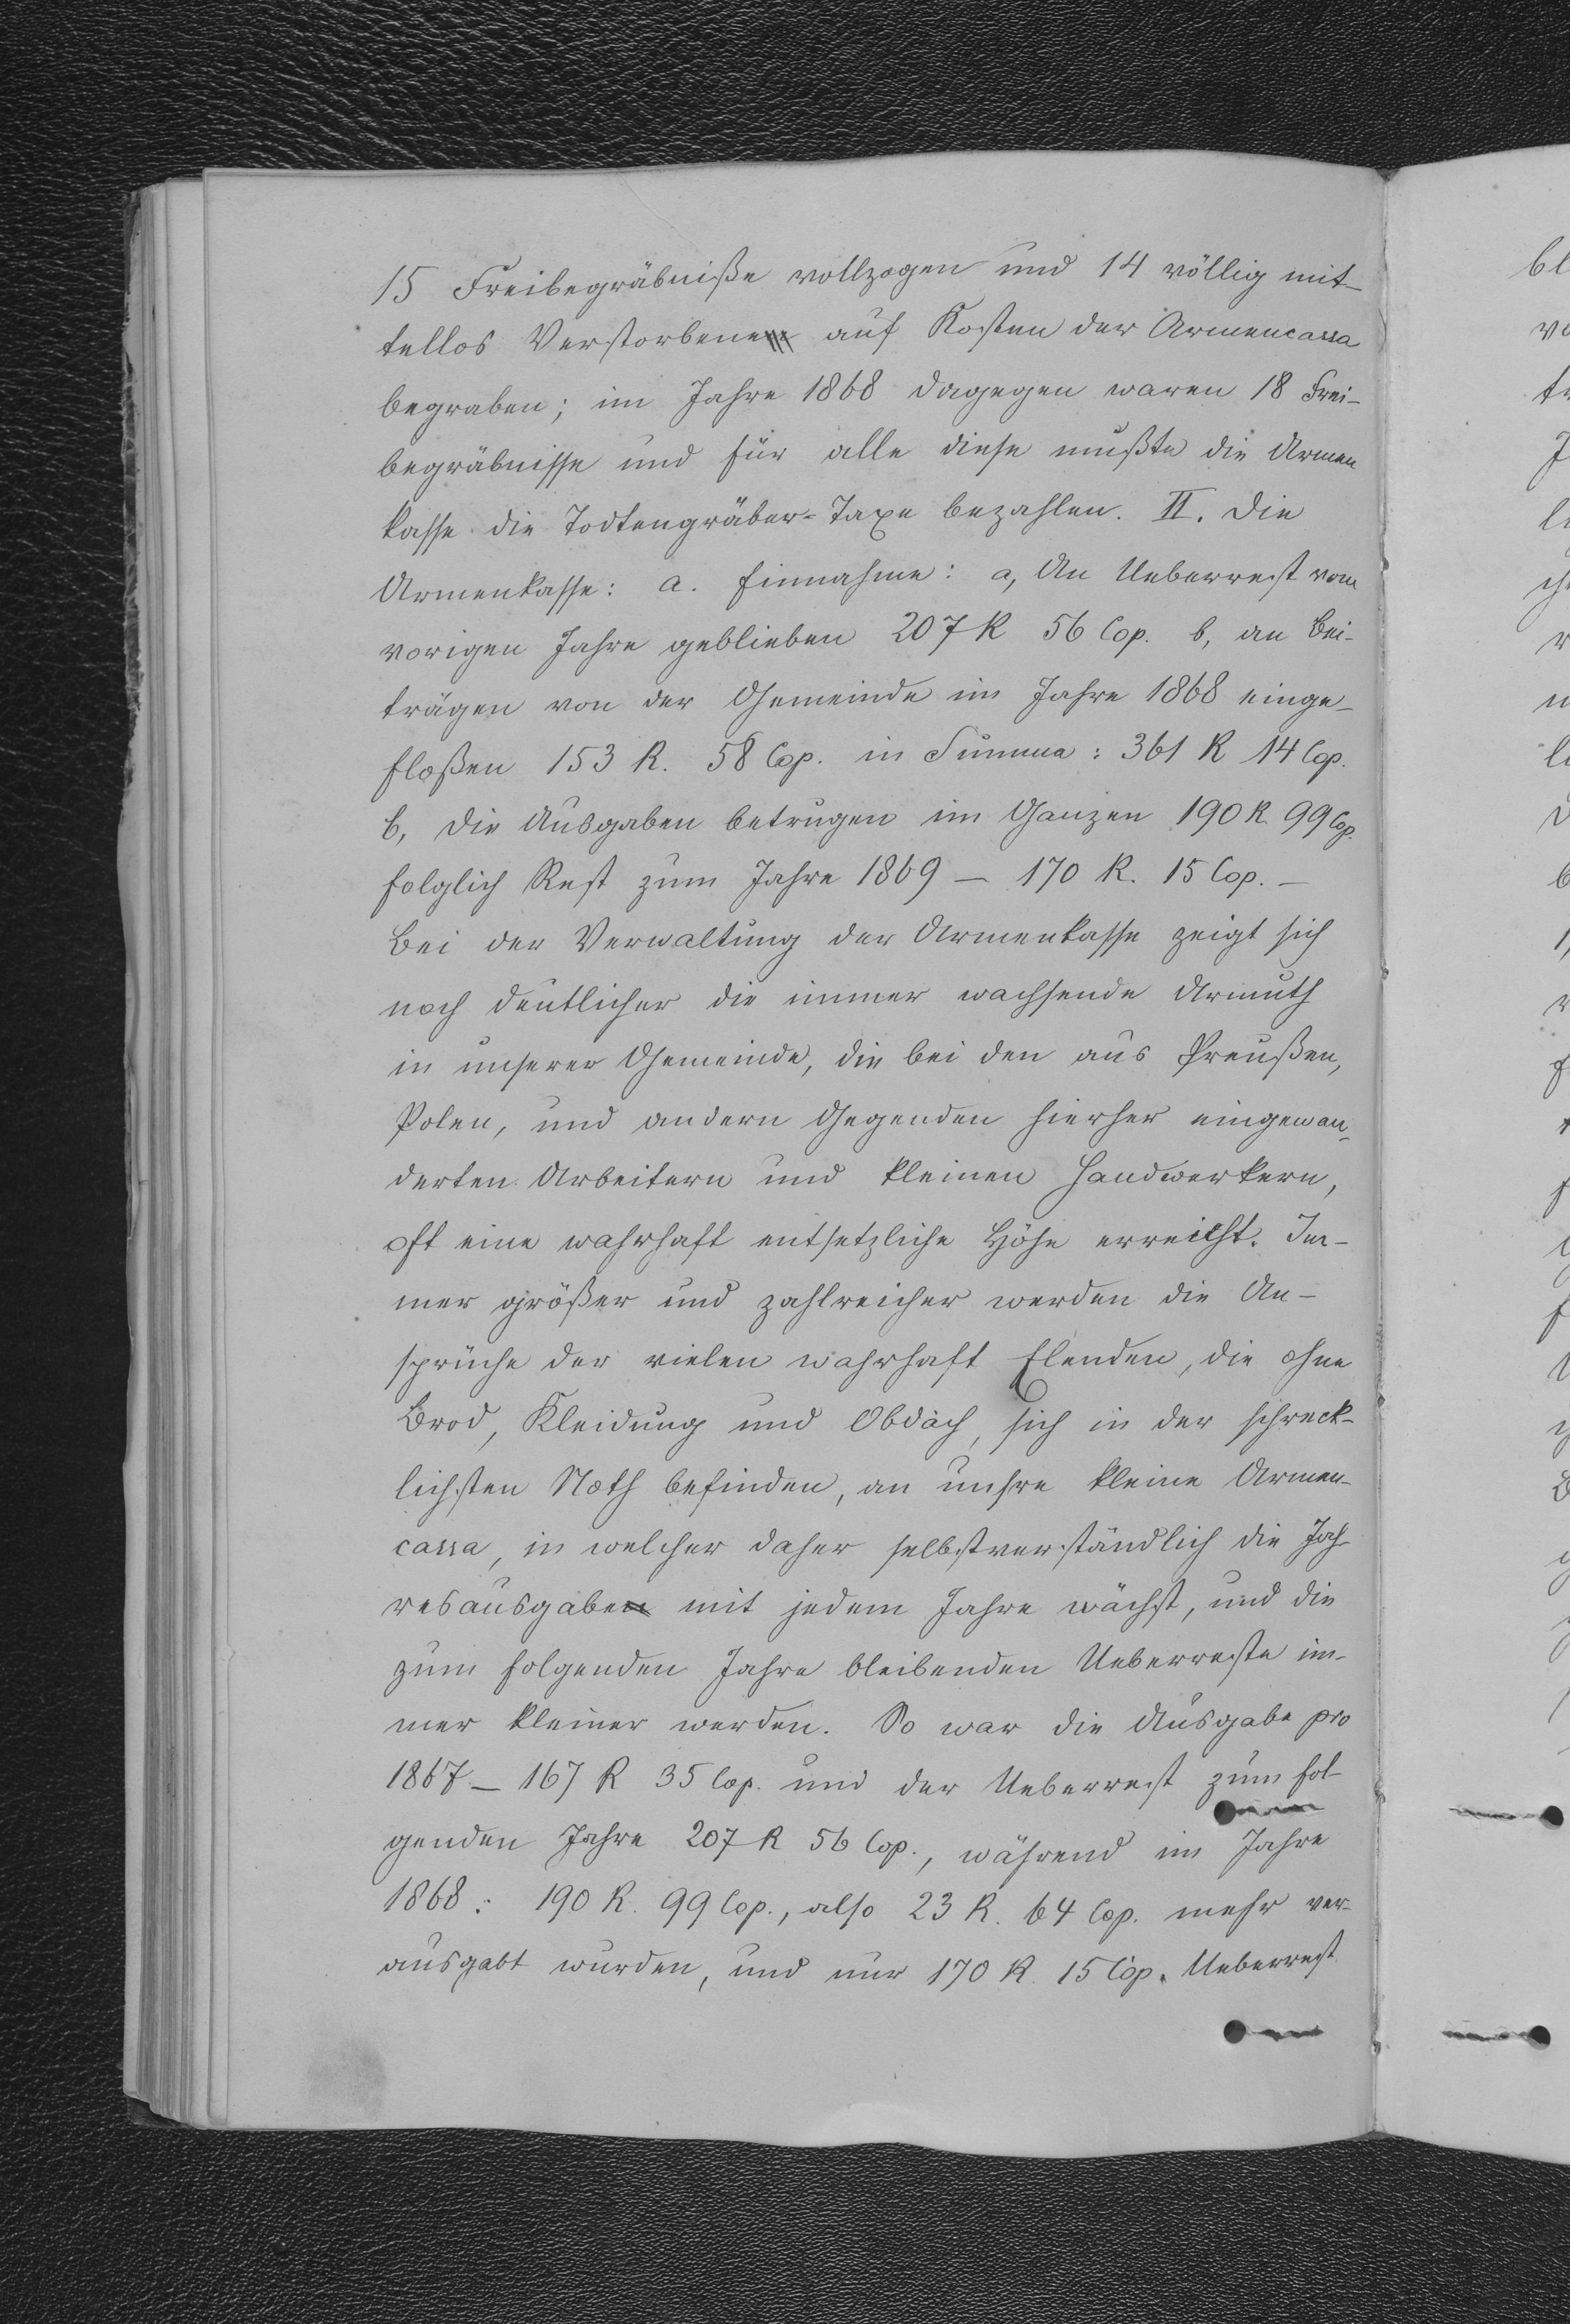 15 Freibegräbniße vollzogen und 14 völlig mit-
tellos Verstorbene auf Kosten der Armencassa
begraben; im Jahre 1868 dagegen waren 18 Frei-
begräbnisse und für alle diese mußte die Armen
kasse die Todtengräber-Taxe bezahlen. II. Die
Armenkasse: a. Einnahme: a, An Ueberrest vom
vorigen Jahre geblieben 207 R 56 Cop. b, an Bei-
trägen von der Gemeinde im Jahre 1868 einge-
floßen 153 R. 58 Cop. in Summa: 361 R 14 Cop.
b, Die Ausgaben betrugen im Ganzen 190 R. 99 Cop.
folglich Rest zum Jahre 1869 — 170 R. 15 Cop. —
Bei der Verwaltung der Armenkasse zeigt sich
noch deutlicher die immer wachsende Armuth
in unserer Gemeinde, die bei den aus Preußen,
Polen, und andern Gegenden hierher eingewan-
derten Arbeitern und kleinen Handwerkern,
oft eine wahrhaft entsetzliche Höhe erreicht. Im-
mer größer und zahlreicher werden die An-
sprüche der vielen wahrhaft Elenden, die ohne
Brod, Kleidung und Obdach, sich in der schreck-
lichsten Noth befinden, an unsre kleine Armen-
cassa, in welcher daher selbstverständlich die Jah-
resausgabe mit jedem Jahre wächst, und die
zum folgenden Jahre bleibenden Ueberreste im-
mer kleiner werden. So war die Ausgabe pro
1867 — 167 R 35 Cop. und der Ueberrest zum fol-
genden Jahre 207 R 56 Cop., während im Jahre
1868: 190 R. 99 Cop., also 23 R. 64 Cop. mehr ver-
ausgabt wurden, und nur 170 R. 15 Cop. Ueberrest